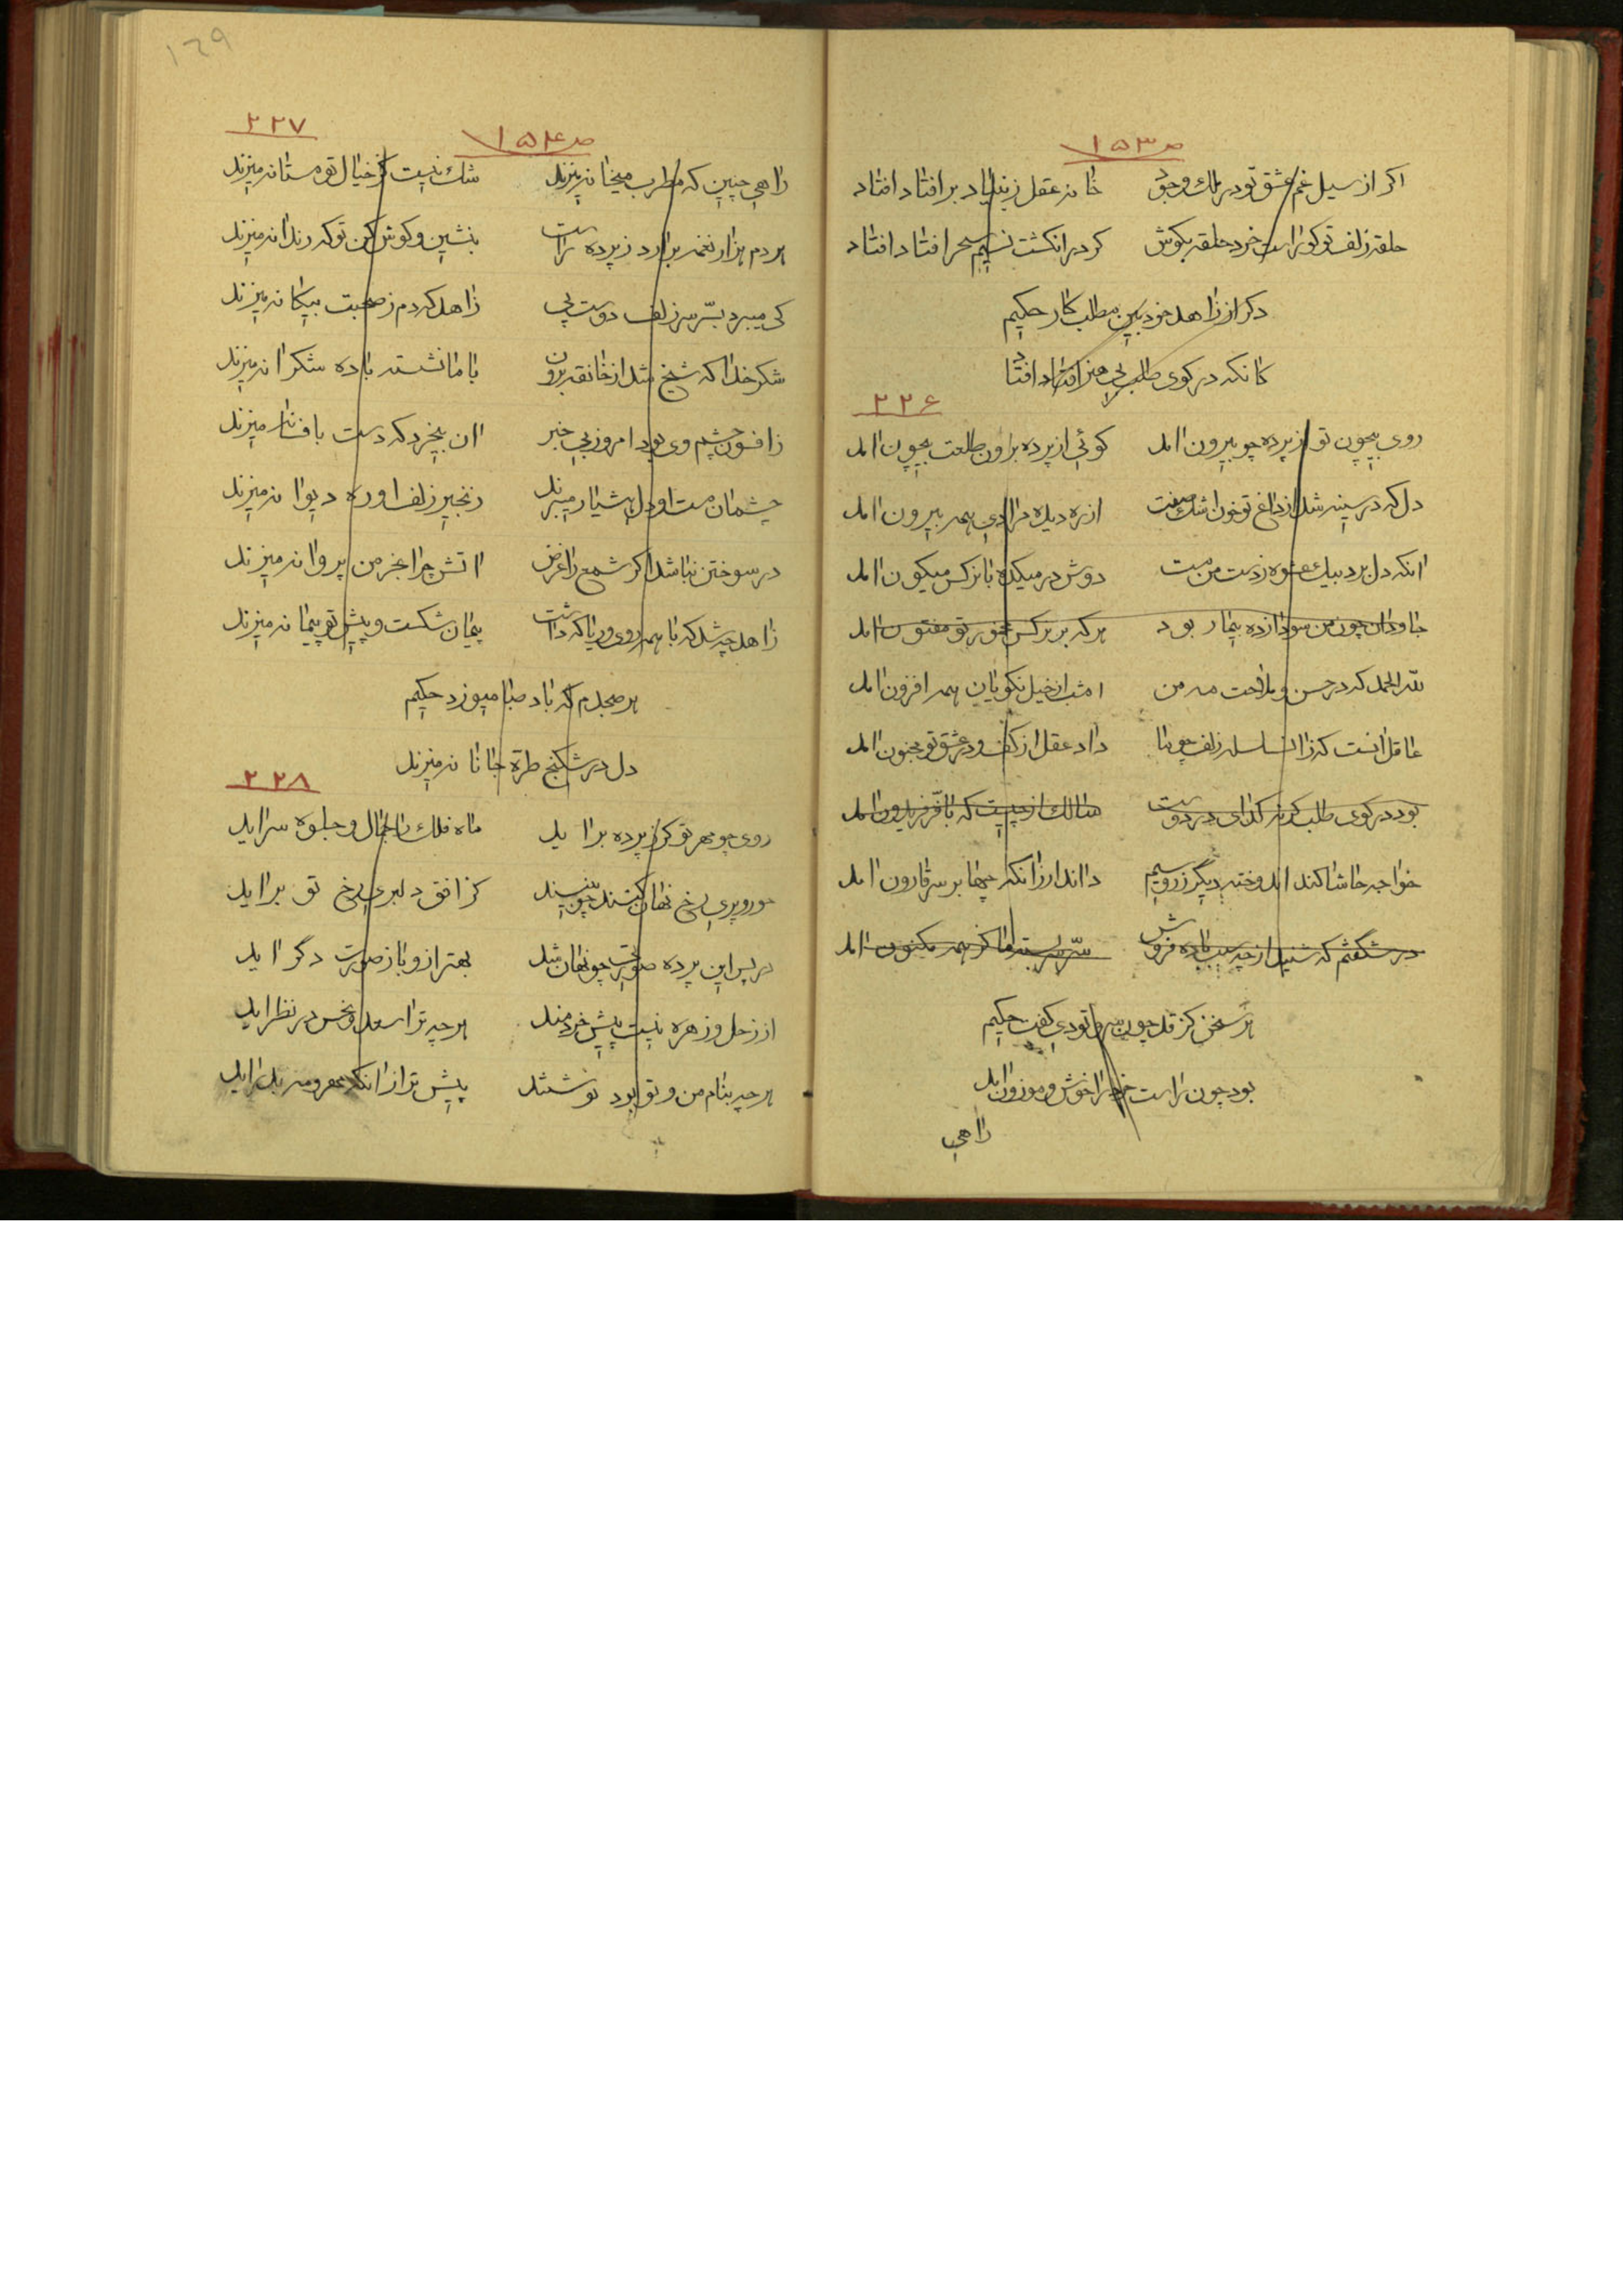 ص ۱۵۳
اگر از سیل غم عشق تو در ملک وجود خانه عقل ز بنیاد بر افتاد افتاد
حلقه زلف تو کو راست خرد حلقه بکوش کر در انکشت نسیم سحر افتاد افتاد
دکر از زاهد خودبین مطلب کار حکیم
کانکه در کوی طلب بی افتاد افتاد
۲۲۶
روی بیچون تو از پرده چو بیرون امد کوئی از پرده برون طلعت بیچون امد
دل که در سینه شد از داغ تو خون اشک صفت از ره دیده مرا دی همه بیرون امد
انکه دل برد بیک عشوه ز دست من مست دوش در میکده با نرکس میکون امد
جاودان چون من سودازده بیمار بود هر که بر نرکس تو مفتون امد
لله الحمد که در حسن و ملاحت مه من امشب از خیل نکویان همه افزون امد
عاقل انست که زان سلسله زلف چو ما داد عقل از کف و در عشق تو مجنون امد
بود در کوی طلب کدای در دوست که با فر فریدون امد
خواجه حاشا کند اندوخته دیگر زر و سیم داند ار زانکه چها بر سر قارون امد
در شکفتم که شنید از چه سبب باده فروش سر سربسته ما کز همه مکنون امد
هر سخن کز قد چون سرو تو دی کفت حکیم
بود چون راست خرد را خوش و موزون امد
راهی
۱۲۹
ص ۱۵۴
۲۲۷
راهی چنین که مطرب میخانه میزند شک نیست کز خیال تو مستانه میزند
هر دم هزار نغمه برارد ز پرده راست بنشین و کوش کن تو که رندانه میزند
کی میبرد بسر سر زلف دوست پی زاهد که دم ز صحبت بیکانه میزند
شکر خدا که شیخ شد از خانقه برون با ما نشسته باده شکرانه میزند
ز افسون چشم وی بود امروز بی خبر ان بیخرد که دست بافسانه میزند
چشمان مست او دل هشیار میبرند زنجیر زلف او ره دیوانه میزند
در سوختن نباشد اکر شمع را غرض اتش چرا بخرمن پروانه میزند
زاهد چه شد که با همه روی و ریا که داشت پیمان شکست و پیش تو پیمانه میزند
هر صبحدم که باد صبا میوزد حکیم
دل در شکنج طره جانانه میزند
۲۲۸
روی چو مهر تو کز پرده براید ماه فلک را جمال و جلوه سراید
حور و پری رخ نهان کنند چو بینند کز افق دلبری رخ تو براید
در پس این پرده صورتت چو نهان شد بهتر ازو باز صورت دگر اید
از زحل و زهره نیست پیش خردمند هر چه ترا سعد و نحس در نظر اید
هر چه بنام من و تو بود نوشتند پیش تر از انکه مهر و مه بدراید